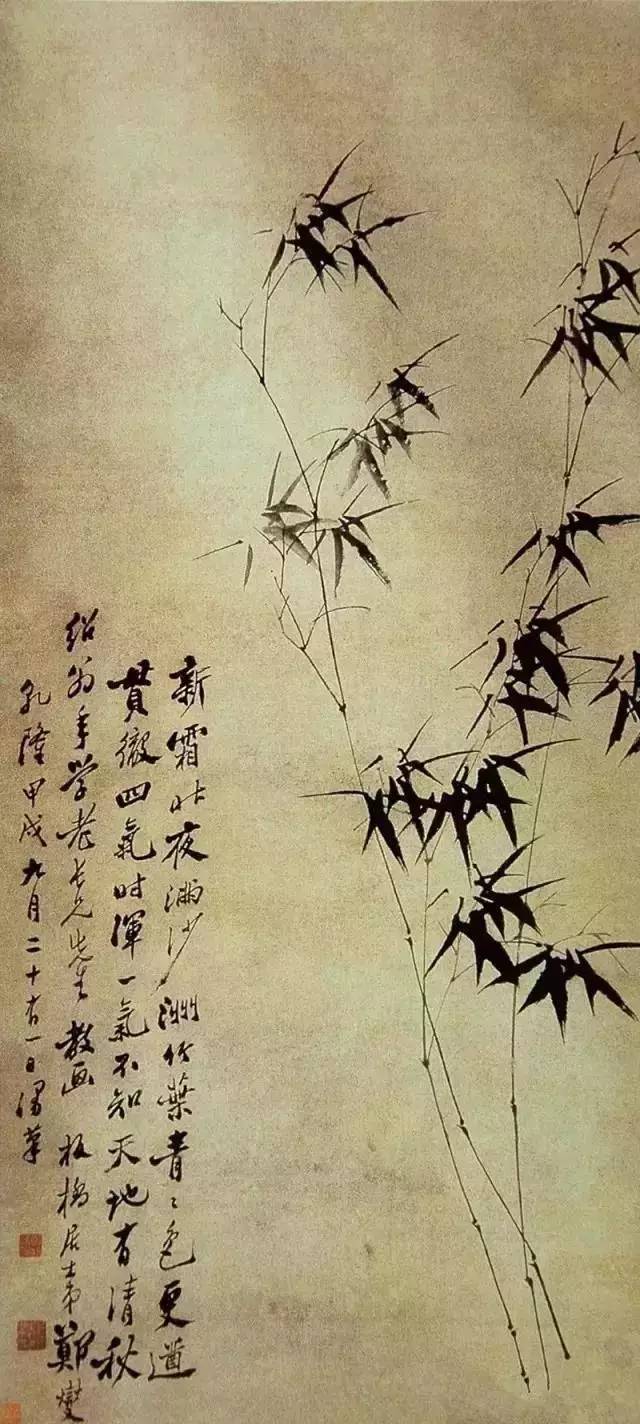 新霜昨夜滿沙洲竹葉青〻色更遒
貫徹四氣时渾一氣不知天地有清秋
绍翁年学老长兄先生 教画 板橋居士弟鄭燮
乾隆甲戌九月二十有一日